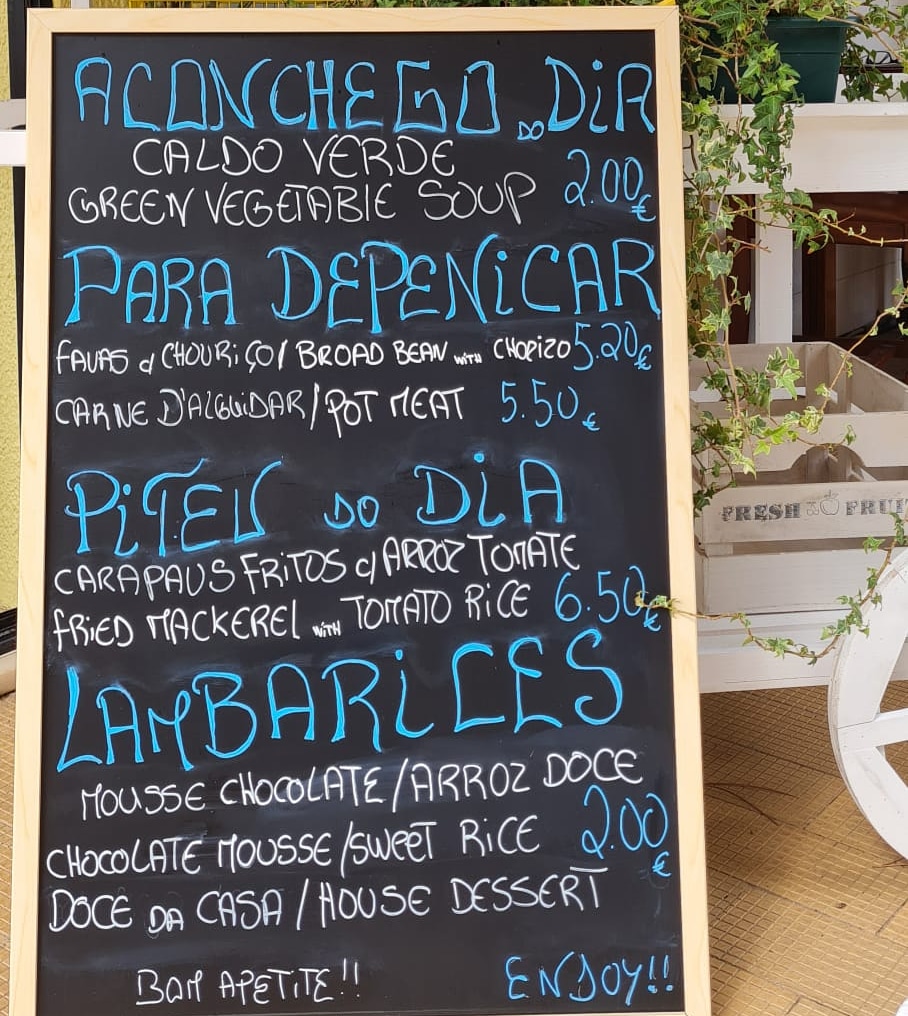 ACONCHEGO DO DiA
CALDO VERDE
GREEN VEGETABLE SOUP 2.00€
PARA DEPENiCAR
FAVAS c/ CHOURiÇO / BROAD BEAN WITH CHORIZO 5.20€
CARNE D'ALGUiDAR / POT MEAT 5.50€
PiTEU DO DiA
CARAPAUS FRITOS c/ ARROZ TOMATE
FRiED MACKEREL WiTH TOMATO RiCE 6.50€
LAMBARiCES
MOUSSE CHOCOLATE / ARROZ DOCE
CHOCOLATE MOUSSE / SWEET RiCE 2.00€
DOCE DA CASA / HOUSE DESSERT
BOM APETiTE!! ENJOY!!
FRESH FRUI